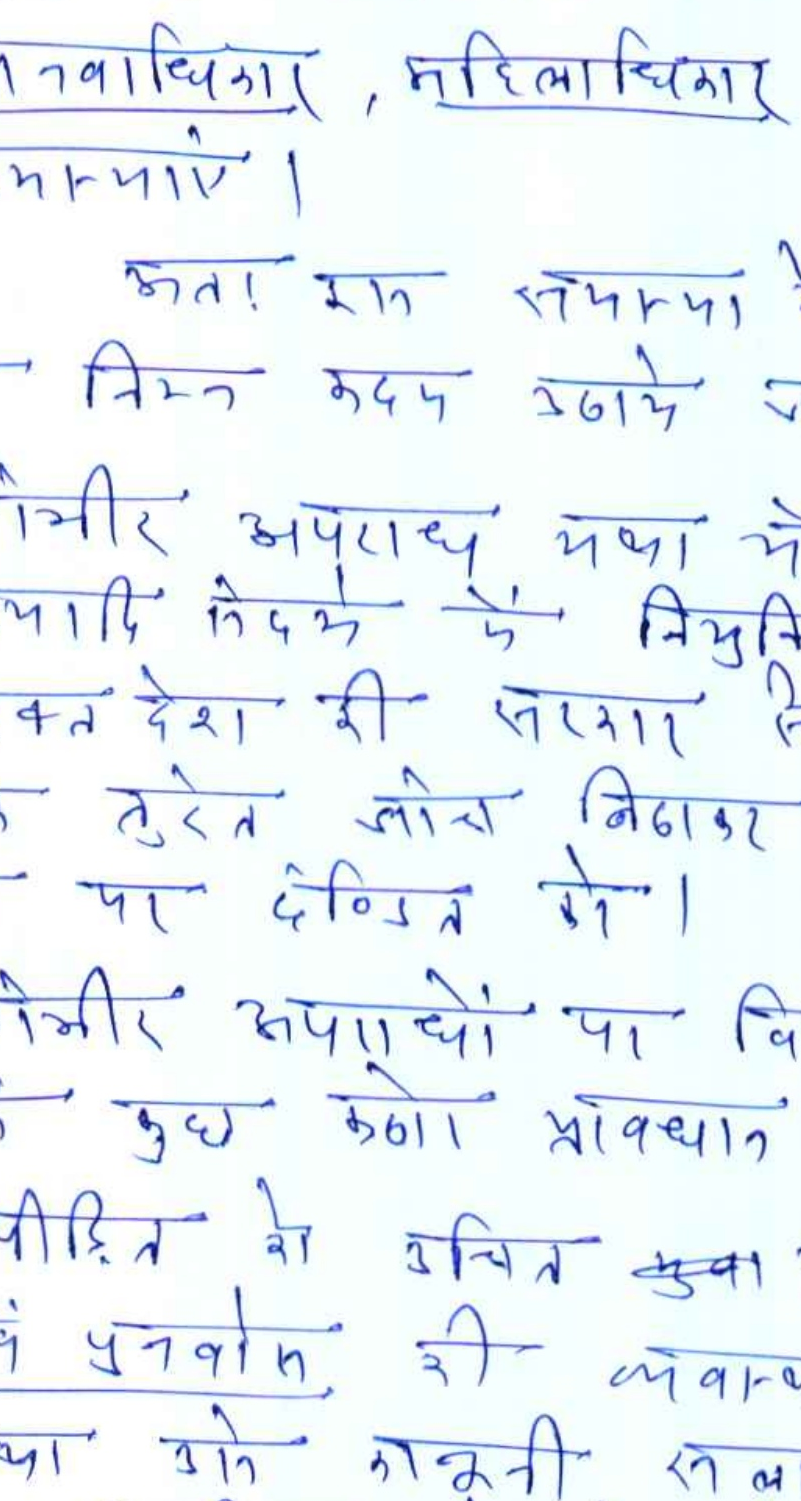 नवाधिकार, महिलाधिकार
मस्याएं ।
अतः इन समस्या
निम्न कदम उठाये
गंभीर अपराध यथा
यादि में नियुक्ति
क्त देश की सरकार
तुरंत जाँच बिठाकर
पर दंडित करे ।
गंभीर अपराधों पर वि
कुछ कठोर प्रावधान
पीड़ित को उचित
पुनर्वास की व्यवस्थ
था उन्हें कानूनी सला